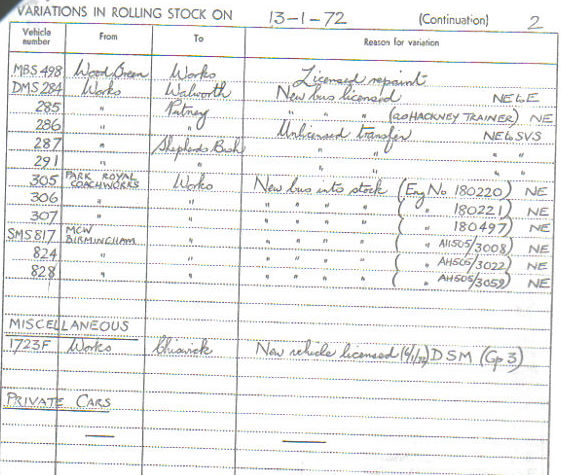 VARIATIONS IN ROLLING STOCK ON 13-1-72 (Continuation) 2
Vehicle number From To Reason for variation
MBS 498 Wood Green Works Licensed repaint
DMS 284 Works Walworth New bus licensed NE6E
285 " Putney " " " (as HACKNEY TRAINER) NE
286 " " Unlicensed transfer NE6SVS
287 " Shepherds Bush " " " "
291 " " " " " "
305 PARK ROYAL COACHWORKS Works New bus into stock (Eng No 180220) NE
306 " " " " " " ( " 180221) NE
307 " " " " " " ( " 180497) NE
SMS 817 MCW BIRMINGHAM " " " " " ( " AH505/3008) NE
824 " " " " " " ( " AH505/3022) NE
828 " " " " " " ( " AH505/3059) NE
MISCELLANEOUS
1723F Works Chiswick New vehicle licensed DSM (Gp 3)
PRIVATE CARS
— —